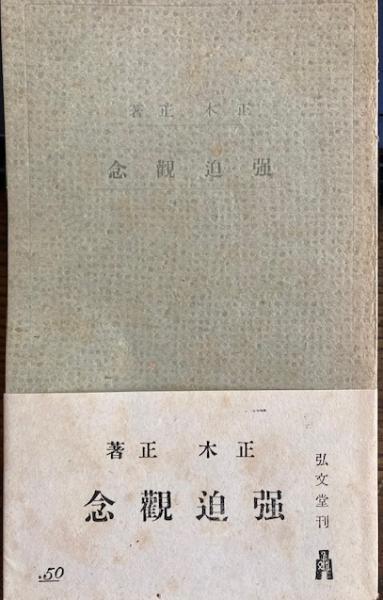 正木正著
强迫觀念
正木正著
强迫觀念
弘文堂刊
.50